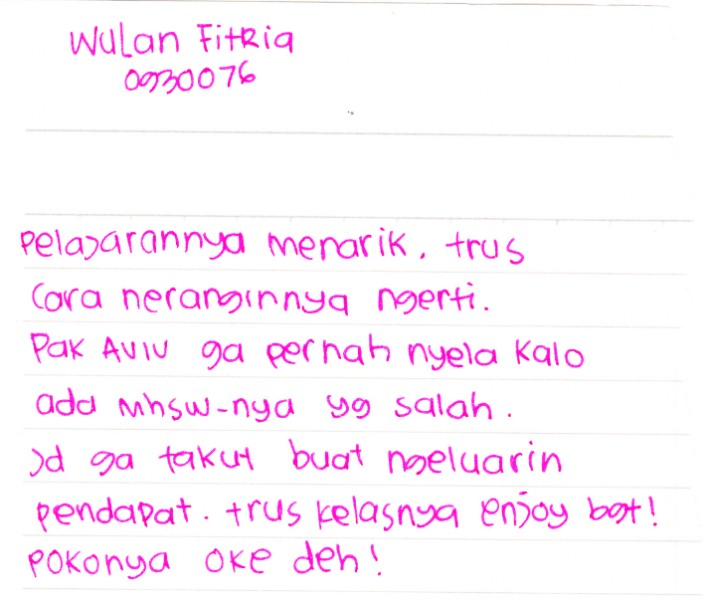 Wulan Fitria
0930076
Pelajarannya menarik, trus
Cara neranginnya ngerti.
Pak Aviv ga pernah nyela kalo
ada Mhsw-nya yg salah.
Jd ga takut buat ngeluarin
pendapat. trus kelasnya enjoy bgt!
Pokonya oke deh!